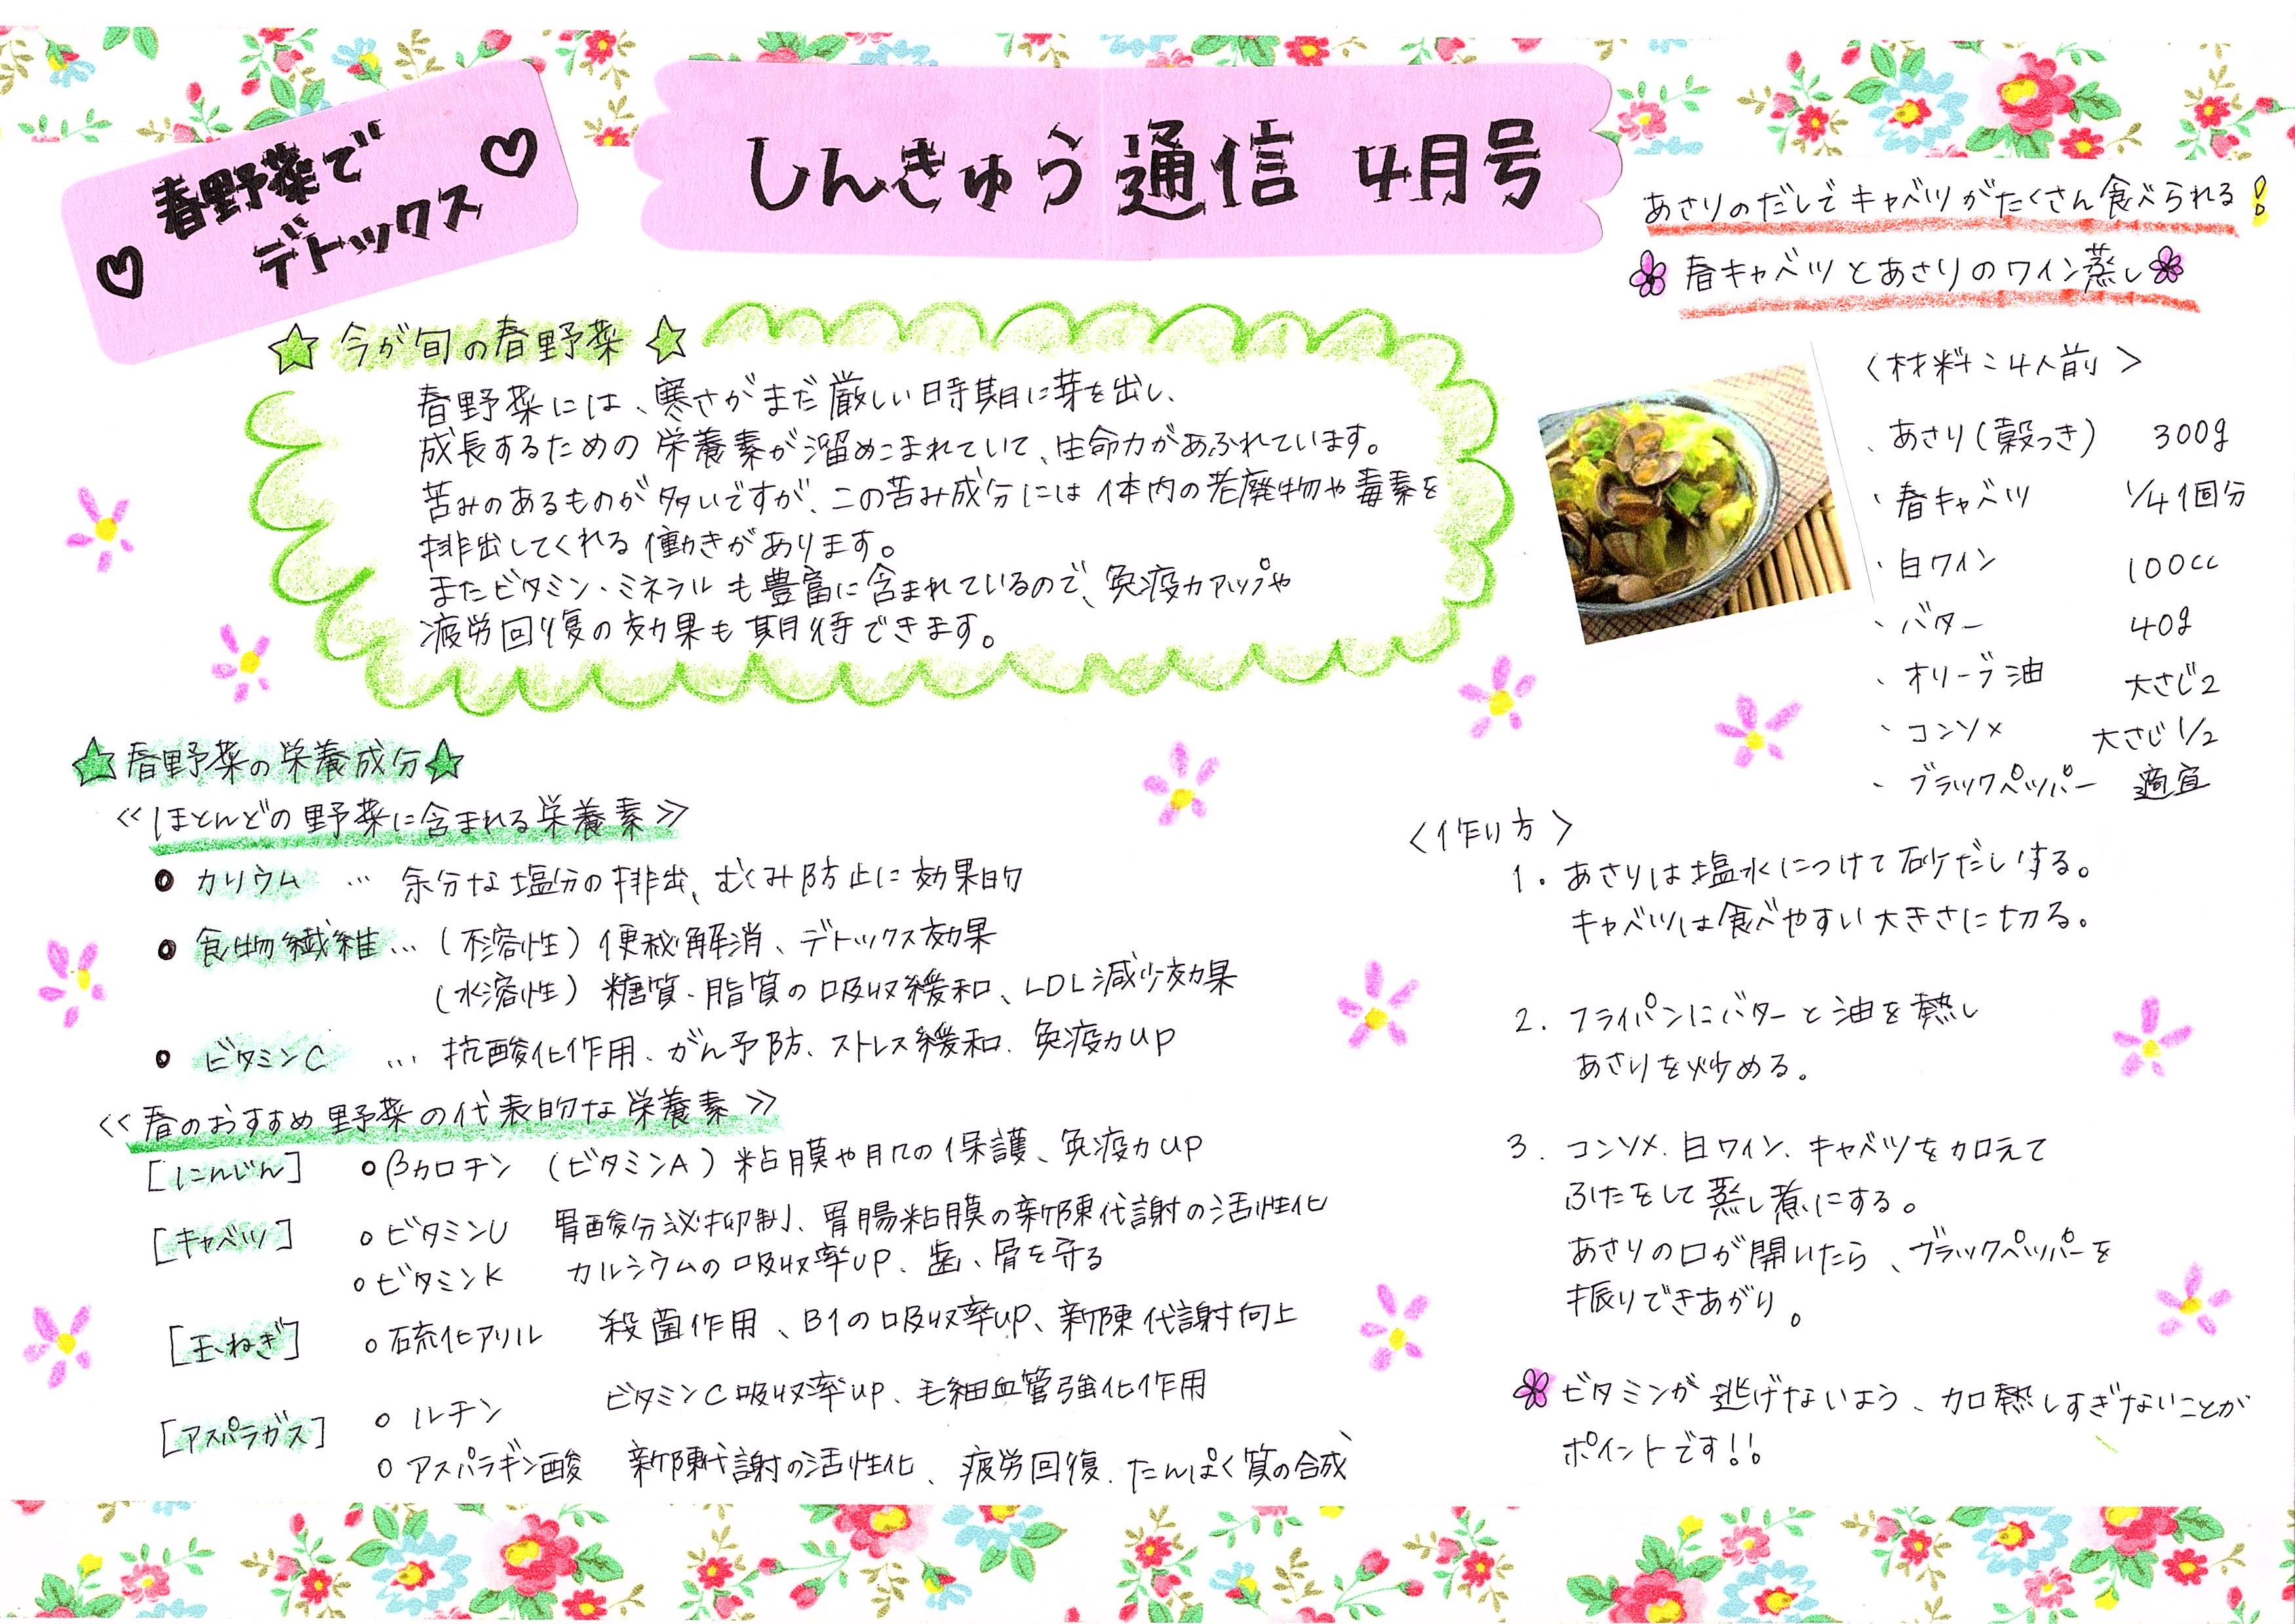 春野菜で
デトックス
しんきゅう通信 4月号
☆今が旬の春野菜☆
春野菜には、寒さがまだ厳しい時期に芽を出し、
成長するための栄養素が溜めこまれていて、生命力があふれています。
苦みのあるものが多いですが、この苦み成分には体内の老廃物や毒素を
排出してくれる働きがあります。
またビタミン・ミネラルも豊富に含まれているので、免疫力アップや
疲労回復の効果も期待できます。
☆春野菜の栄養成分☆
≪ほとんどの野菜に含まれる栄養素≫
● カリウム … 余分な塩分の排出、むくみ防止に効果的
● 食物繊維… (不溶性) 便秘解消、デトックス効果
(水溶性) 糖質・脂質の吸収緩和、LDL減少効果
● ビタミンC … 抗酸化作用、がん予防、ストレス緩和、免疫力UP
≪春のおすすめ野菜の代表的な栄養素≫
[にんじん] ○βカロチン (ビタミンA) 粘膜や肌の保護、免疫力UP
[キャベツ] ○ビタミンU 胃酸分泌抑制、胃腸粘膜の新陳代謝の活性化
○ビタミンK カルシウムの吸収率UP、歯、骨を守る
[玉ねぎ] ○硫化アリル 殺菌作用、B1の吸収率UP、新陳代謝向上
[アスパラガス] ○ルチン ビタミンC吸収率UP、毛細血管強化作用
○アスパラギン酸 新陳代謝の活性化、疲労回復、たんぱく質の合成
あさりのだしでキャベツがたくさん食べられる!
春キャベツとあさりのワイン蒸し
〈材料:4人前〉
・あさり(殻つき) 300g
・春キャベツ 1/4個分
・白ワイン 100cc
・バター 40g
・オリーブ油 大さじ2
・コンソメ 大さじ1/2
・ブラックペッパー 適宜
〈作り方〉
1. あさりは塩水につけて砂だしする。
キャベツは食べやすい大きさに切る。
2. フライパンにバターと油を熱し
あさりを炒める。
3. コンソメ、白ワイン、キャベツを加えて
ふたをして蒸し煮にする。
あさりの口が開いたら、ブラックペッパーを
振りできあがり。
ビタミンが逃げないよう、加熱しすぎないことが
ポイントです!!